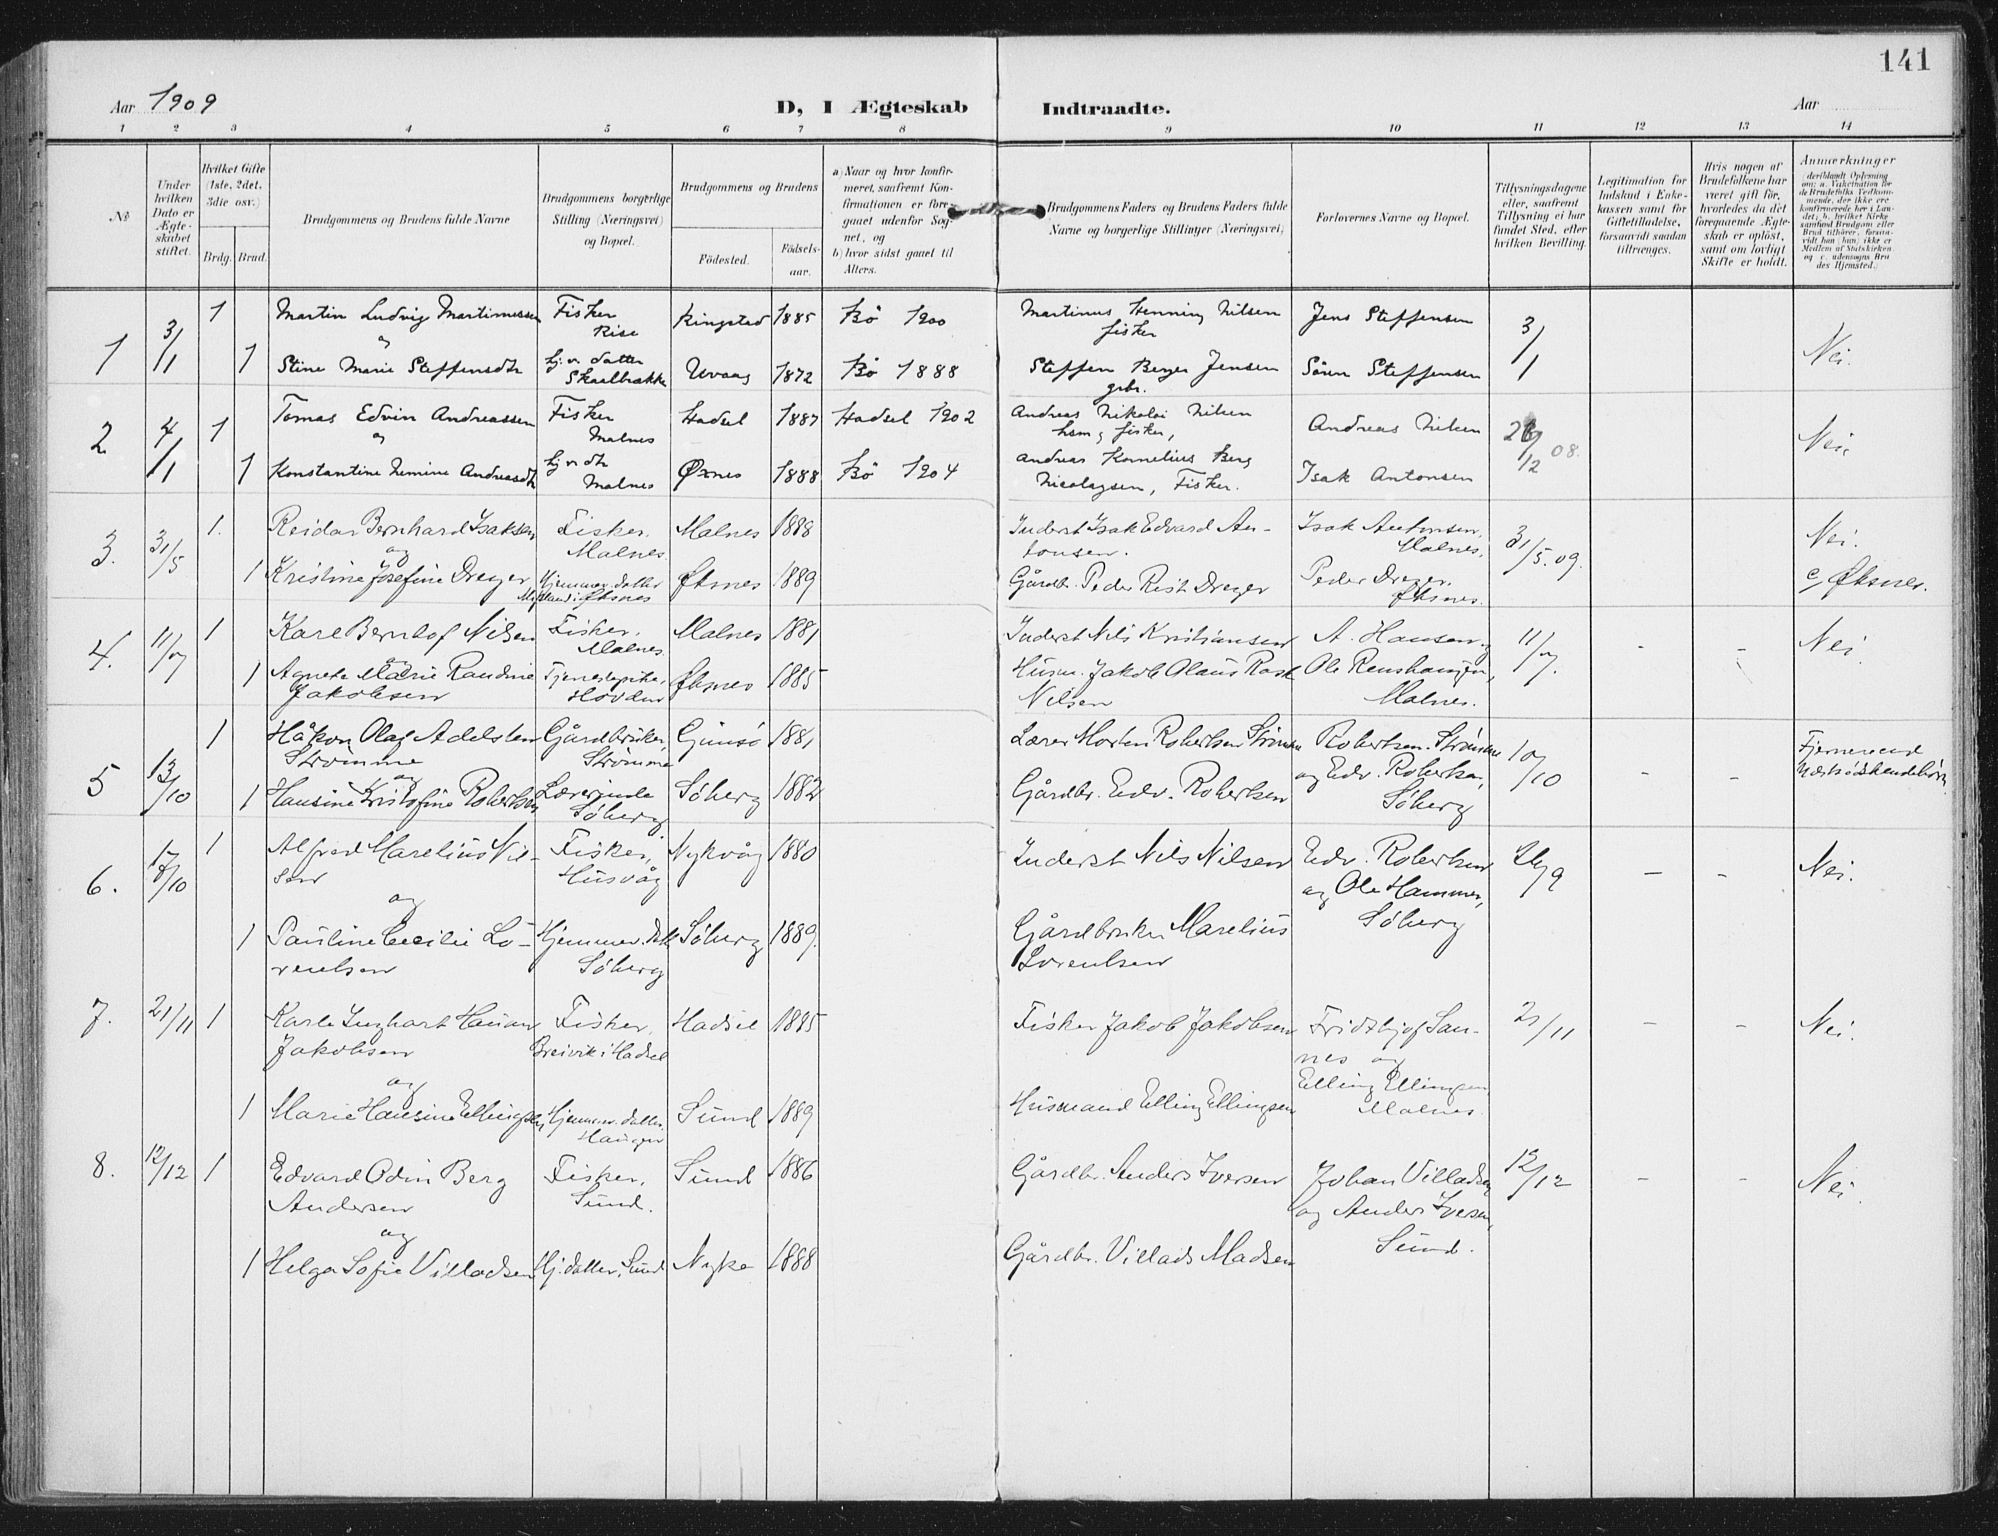 141
Aar 1909
D, I Ægteskab Indtraadte.
Aar
1 2 3 4 5 6 7 8 9 10 11 12 13 14
No
Under hvilken Dato er Ægteskabet stiftet.
Hvilket Gifte (1ste, 2det, 3die osv.)
Brdg. Brud.
Brudgommens og Brudens fulde Navne
Brudgommens borgerlige Stilling (Næringsvei) og Bopæl.
Brudgommens og Brudens
Födested.
Födsels-aar.
a) Naar og hvor konfirmeret, saafremt Konfirmationen er foregaaet udenfor Sognet, og
b) hvor sidst gaaet til Alters.
Brudgommens Faders og Brudens Faders fulde Navne og borgerlige Stillinger (Næringsvei)
Forlovernes Navne og Bopæl.
Tillysningsdagene eller, saafremt Tillysning ei har fundet Sted, efter hvilken Bevilling.
Legitimation for Indskud i Enkekassen samt for Giftetilladelse, forsaavidt saadan tiltrænges.
Hvis nogen af Brudefolkene har været gift för, hvorledes da det foregaaende Ægteskab er oplöst, samt om lovligt Skifte er holdt.
Anmærkninger
(deriblandt Oplysning om: a. Vakcination for de Brudefolks Vedkommende, der ikke ere konfirmerede her i Landet; b. hvilket Kirkesamfund Brudgom eller Brud tilhörer, forsaavidt han (hun) ikke er Medlem af Statskirken, og c. udensogns Brudes Hjemsted.)
1 3/1 1 Martin Ludvig Martinussen Fisker Rise Ringstad 1885 Bö 1900 Martinus Henning Nilsen fisker Jens Steffensen 3/1 Nei.
og
1 Stine Marie Steffensdtr hj.v. datter Skaalbrække Uvaag 1872 Bö 1888 Steffen Berger Jensen grbr. Sören Steffensen
2 4/1 1 Tomas Edvin Andreassen Fisker Malnes Hadsel 1887 Hadsel 1902 Andreas Nikolai Nilsen hsm, fisker, Andreas Nilsen /12 08. Nei
og
1 Konstantine Nemine Andreasdtr hj v dtr Malnes Øxnes 1888 Bö 1904 Andreas Kornelius Berg Nicolaysen, Fisker. Isak Antonsen
3. 31/5 1. Reidar Bernhard Isaksen Fisker, Malnes Malnes 1888 Inderst Isak Edvard Antonsen. Isak Antonsen, Malnes. 31/5.09. Nei.
og
1 Kristine Josefine Dreyer Hjemmev. datter Øksnes Øksnes 1889 Gårdbr. Peder Rist Dreyer Peder Dreyer. Øksnes. c/ Øksnes.
4. 11/7 1 Karl Berntof Nilsen Fisker, Malnes Malnes 1881 Inderst Nils Kristiansen A. Hansen og 11/7. - - Nei.
og
1 Agnete Marie Randine Jakobsen Tjenestepike, Hovden Øksnes 1885 Husm. Jakob Olaus Rask Nilsen Ole Benshaugen, Malnes.
5 13/10 1 Håkon Olaf Adelsten Strömme Gårdbruker, Strömme Gimsö 1881 Lærer Morten Robertsen Strömme Robertsen Strömme 10/10 - - Fjernereend Næstsödskendebörn
og
1 Hansine Kristofine Robertsen Lærerinde Söberg Söberg 1882 Gårdbr. Edv. Robertsen og Edv. Robertsen, Söberg
6. 17/10 1 Alfred Marelius Nilsen Fisker, Husvåg Nykvåg 1880 Inderst Nils Nilsen Edv. Robertsen og Ole Hammer, Söberg 26/9 - - Nei.
og
1 Pauline Cecilie Lorentsen Hjemmev. datt. Söberg Söberg 1889. Gårdbruker Marelius Lorentsen
7. 21/11 1 Karle Inghart Hauan Jakobsen Fisker, Breivik i Hadsel Hadsel 1885 Fisker Jakob Jakobsen Fridthjof Sannes og 21/11 - - Nei.
og
1 Marie Hansine Ellingsen Hjemmev. datter. Haugen Sund 1889 Husmand Elling Ellingsen Elling Ellingsen, Malnes.
8. 12/12 1 Edvard Odin Berg Andersen Fisker, Sund. Sund 1886 Gårdbr. Anders Iversen Johan Villadsen og Anders Iversen, Sund. 12/12 - - Nei.
og
1 Helga Sofie Villadsen Hj. datter, Sund Nyke 1888 Gårdbr. Villads Madsen